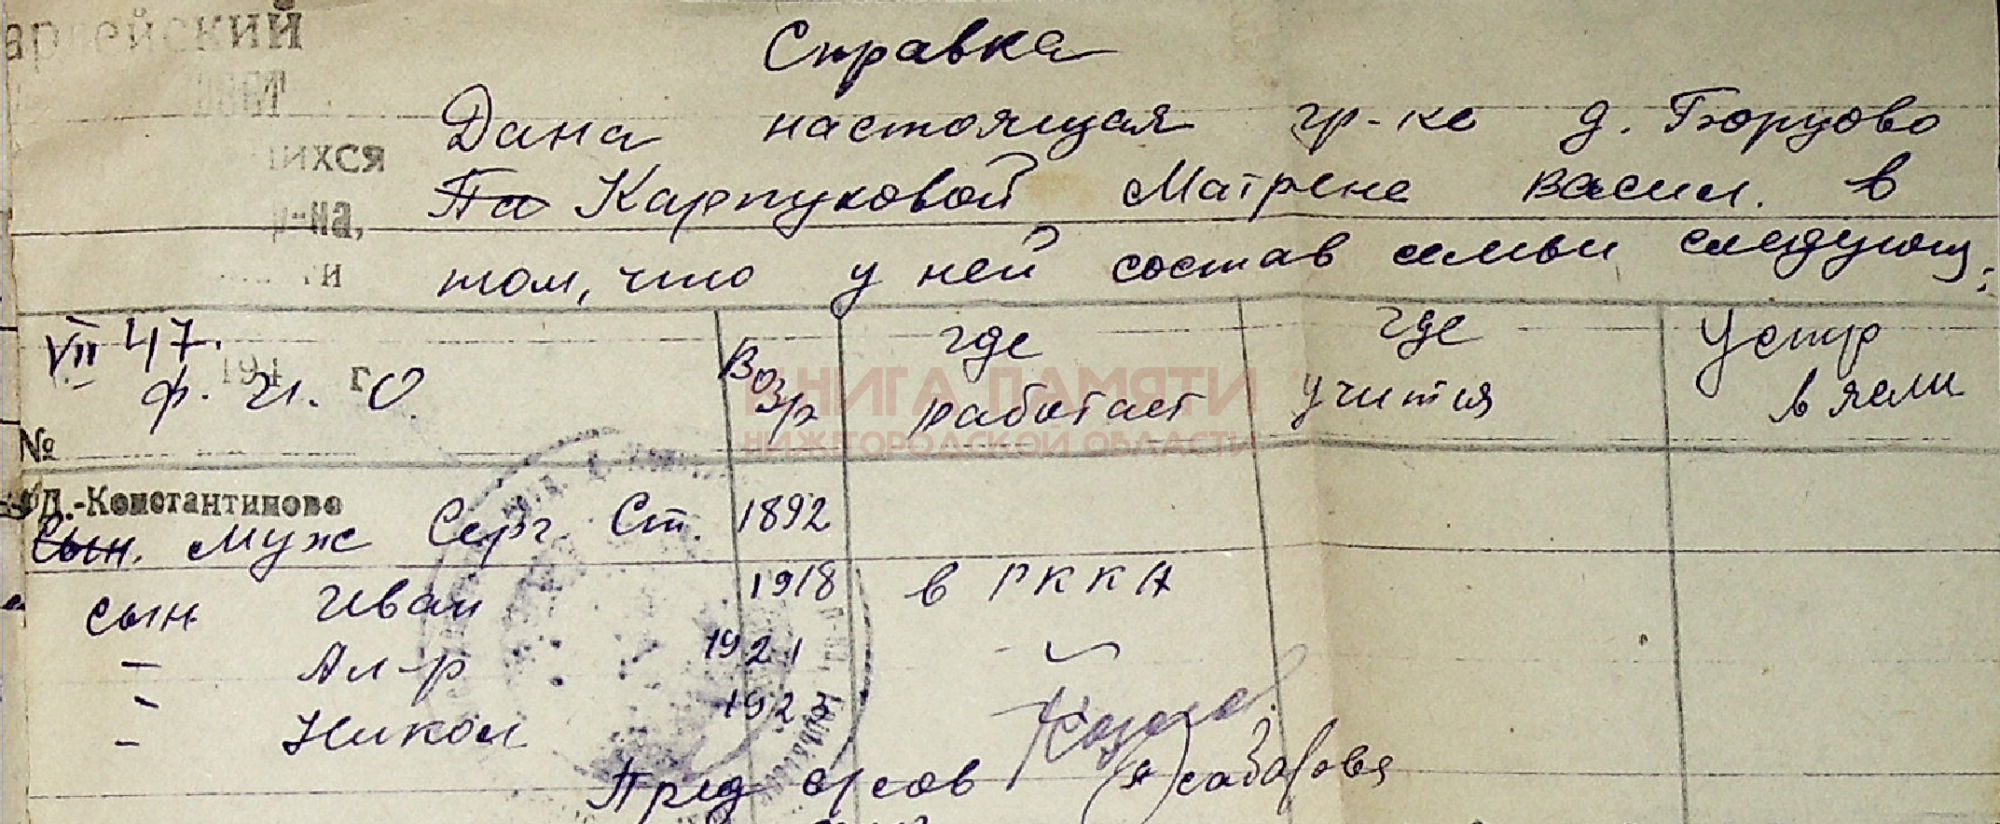 Справка
Дана настоящая гр-ке д. Борцово
Па Карпуковой Матрене Васил. в
том, что у ней состав семьи следующ.:
ихся
р-на,
VII 47.
194 г.
ф. и. о.
Возр
где работает
где учится
Устр в ясли
КНИГА ПАМЯТИ
НИЖЕГОРОДСКОЙ ОБЛАСТИ
№
Д.-Константиново
Сын. муж Серг. Ст. 1892
сын Иван 1918 в РККА
– Ал-р 1921
– Никол 1923
Пред